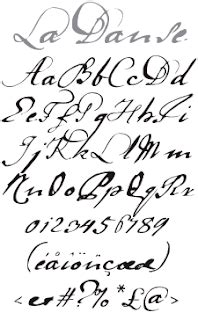 La Danse
AaBbCcDd
EeFfGgHhIi
JjKkLlMm
NnOoPpQqRr
0123456789
(éåîöñçœd)
<er#?%*£@>